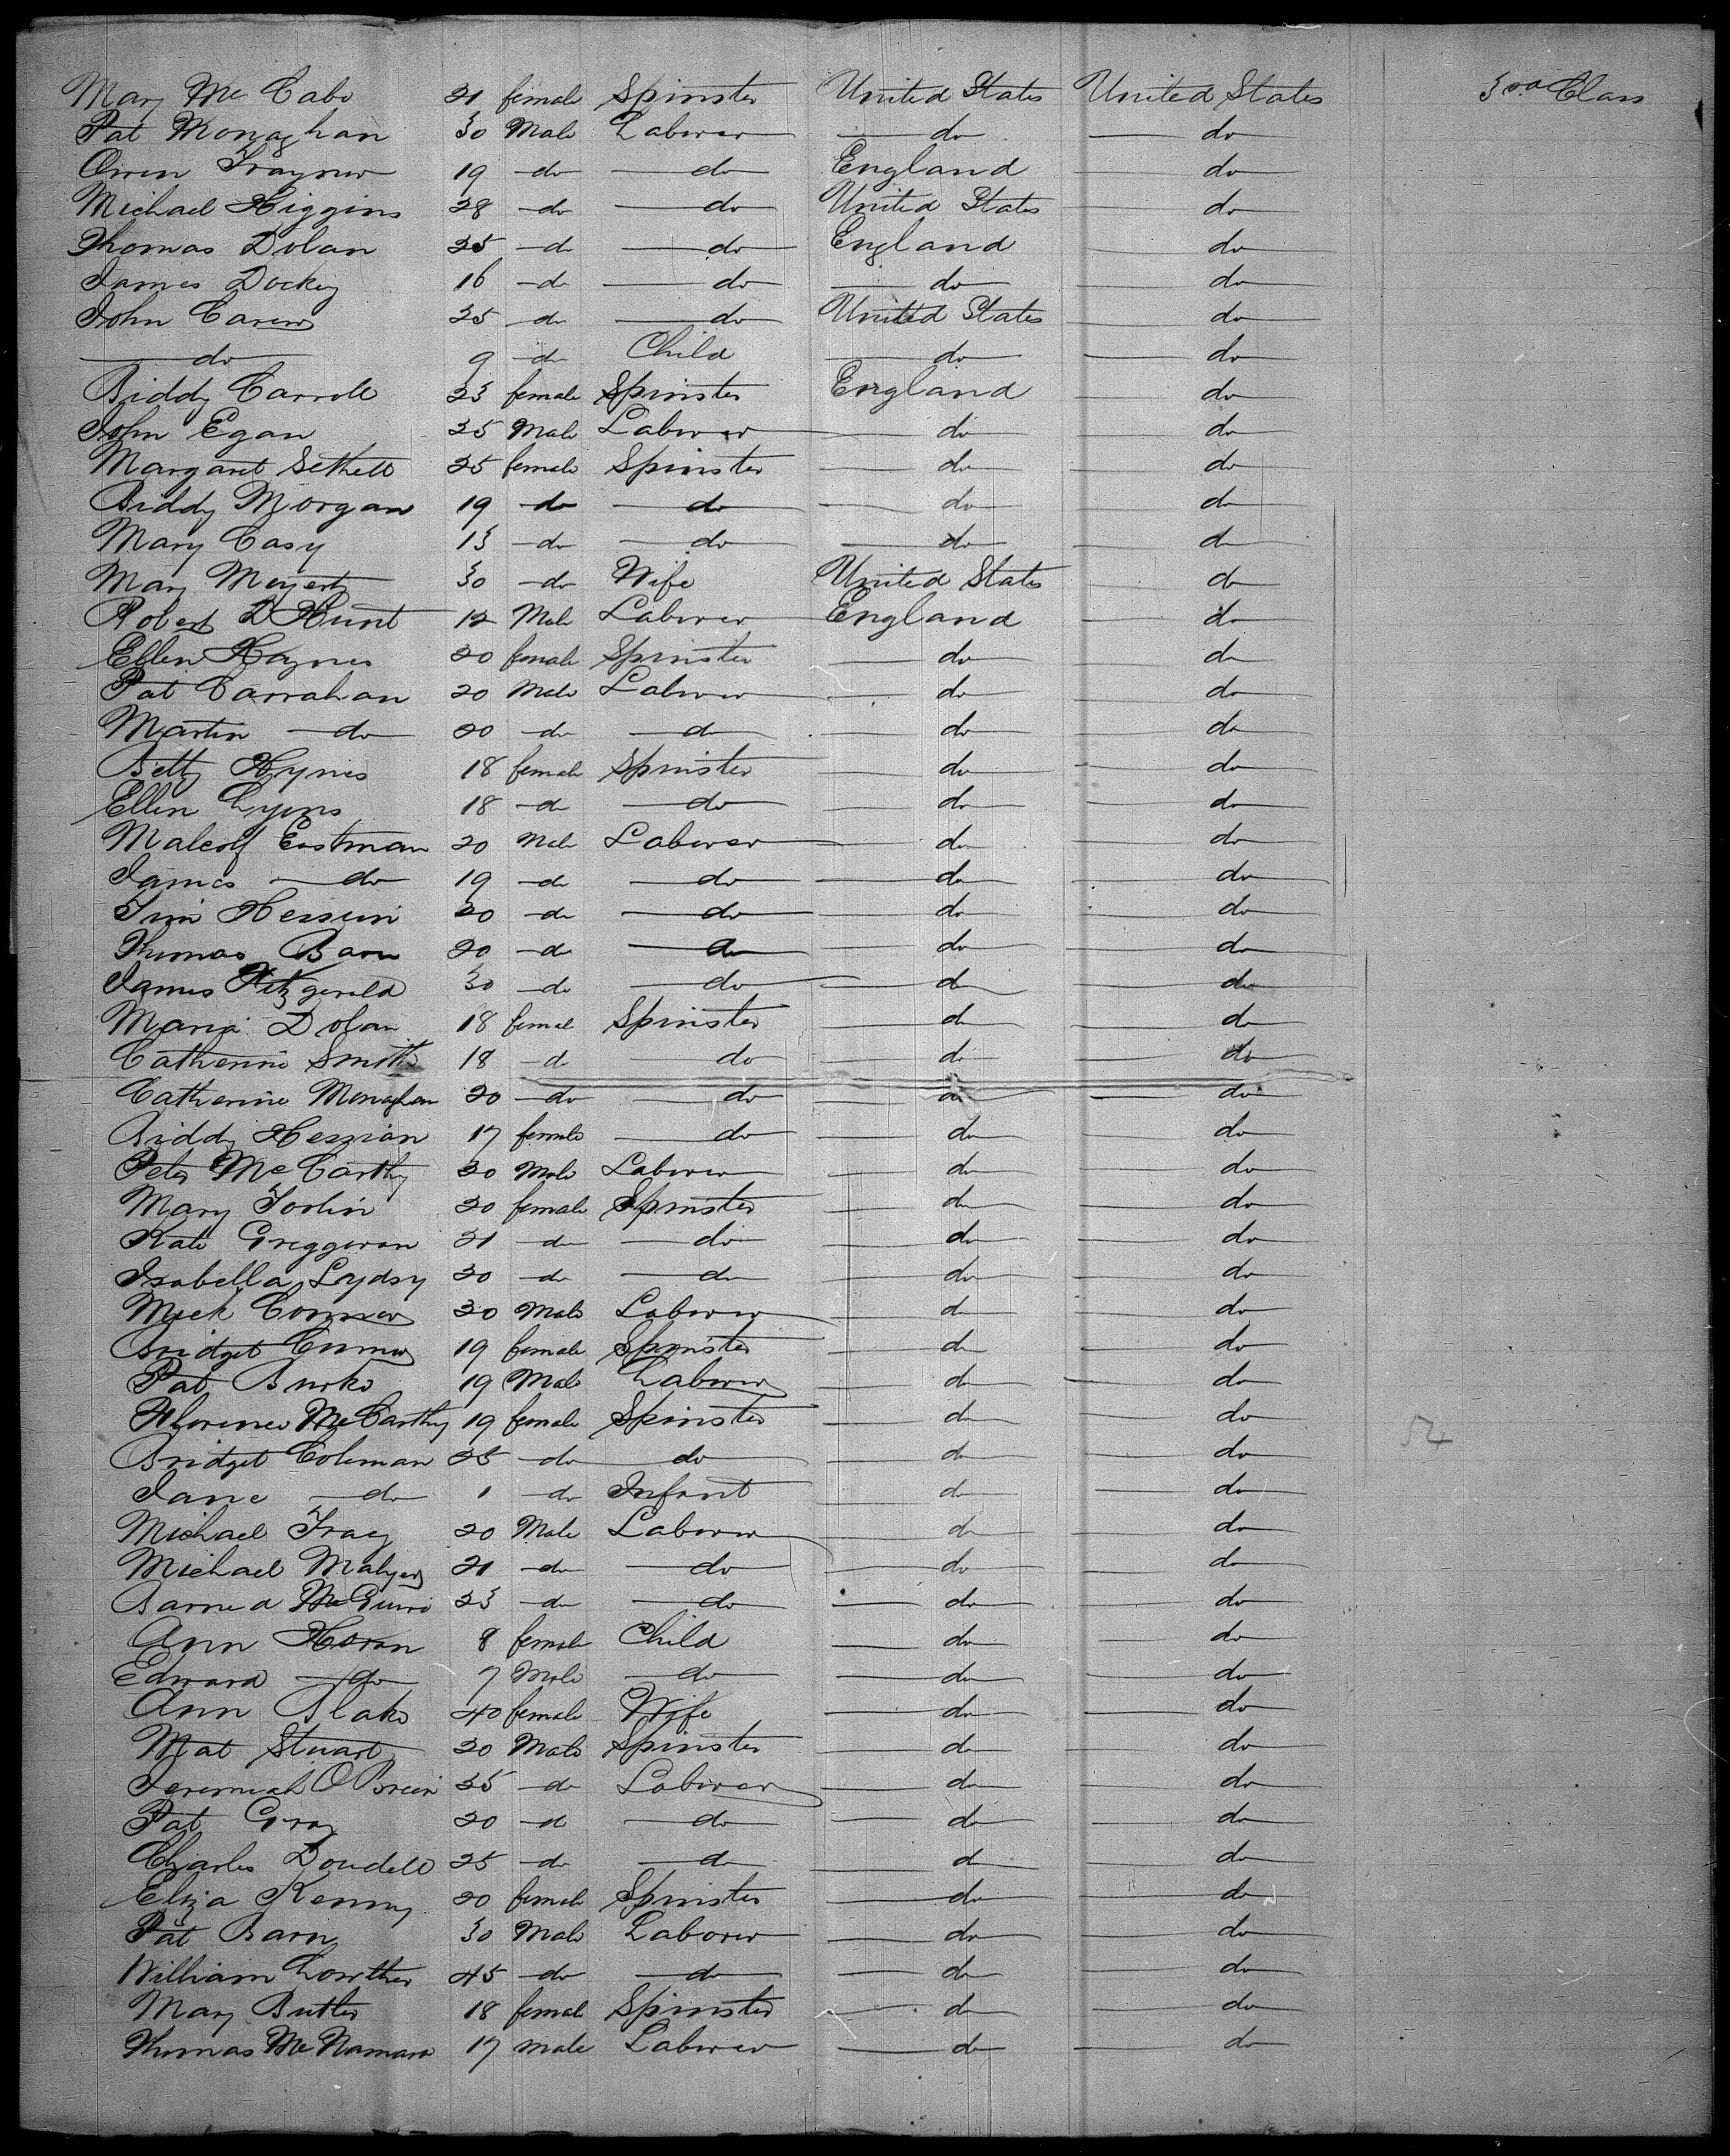 Mary Mc Cabe 21 female Spinster United States United States 3rd Class
Pat Monaghan 30 Male Laborer do do
Owen Traynor 19 do do England do
Michael Higgins 28 do do United States do
Thomas Dolan 25 do do England do
James Dockey 16 do do do do
John Carew 35 do do United States do
do 9 do Child do do
Biddy Carroll 23 female Spinster England do
John Egan 25 Male Laborer do do
Margaret 25 female Spinster do do
Biddy Morgan 19 do do do do
Mary Casy 13 do do do do
Mary 30 do Wife United States do
Robert D Hunt 12 Male Laborer England do
Ellen Haynes 20 female Spinster do do
Pat Carrahan 20 Male Laborer do do
Martin do 20 do do do do
Betty Hynes 18 female Spinster do do
Ellen Lyons 18 do do do do
Malcolf Eastman 20 Male Laborer do do
James do 19 do do do do
Tim 20 do do do do
Thomas Barn 20 do do do do
James Fitzgerald 30 do do do do
Maria Dolan 18 female Spinster do do
Catherine Smith 18 do do do do
Catherine Monaghan 20 do do do do
Biddy Hessian 17 female do do do
Peter McCarthy 20 Male Laborer do do
Mary 20 female Spinster do do
Kate Greggoran 21 do do do do
Isabella Lydsy 30 do do do do
Mick Connor 30 Male Laborer do do
Bridget Connor 19 female Spinster do do
Pat Burke 19 Male Laborer do do
Florence McCarthy 19 female Spinster do do
Bridget Coleman 25 do do do do
Jane do 1 do Infant do do
Michael Tracy 20 Male Laborer do do
Michael 21 do do do do
23 do do do do
Ann Horan 8 female Child do do
Edward do 7 Male do do do
Ann Blake 40 female Wife do do
Mat Stuart 20 Male Spinster do do
Jeremiah O Brien 35 do Laborer do do
Pat Gray 20 do do do do
Charles Doudell 25 do do do do
Eliza Kenny 20 female Spinster do do
Pat Barn 30 Male Laborer do do
William Lowther 45 do do do do
Mary Butler 18 female Spinster do do
Thomas McNamara 17 male Laborer do do